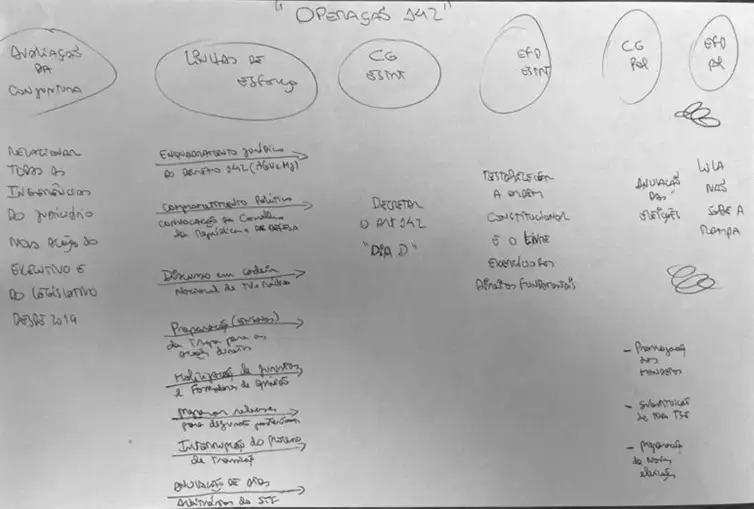 "OPERAÇÃO 142"
AVALIAÇÃO
DA
CONJUNTURA
LINHAS DE
ESFORÇO
CG
ESTRT
EFD
ESTRT
CG
POL
EFD
POL
RELACIONAR
TODAS AS
INGERÊNCIAS
DO JUDICIÁRIO
NAS AÇÕES DO
EXECUTIVO E
DO LEGISLATIVO
DESDE 2019
ENQUADRAMENTO JURÍDICO
DO DECRETO 142 (AGU e MJ)
Comprometimento Político
convocação do Conselho
da República e DA DEFESA
Discurso em cadeia
Nacional de TV e Rádio
Preparação
da Tropa para as
ações diretas
Mobilização de juristas
e Formadores de opinião
preparar
para
Interrupção do Processo
de Transição
ANULAÇÃO DE ATOS
arbitrários do STF
DECRETAR
O ART 142
"DIA D"
RESTABELECER
A ORDEM
CONSTITUCIONAL
E O LIVRE
EXERCÍCIO DOS
DIREITOS FUNDAMENTAIS
ANULAÇÃO
DAS
ELEIÇÕES
- Prorrogação
dos
MANDATOS
- SUBSTITUIÇÃO
de TSE
- preparação
de novas
eleições
LULA
NÃO
SOBE A
RAMPA